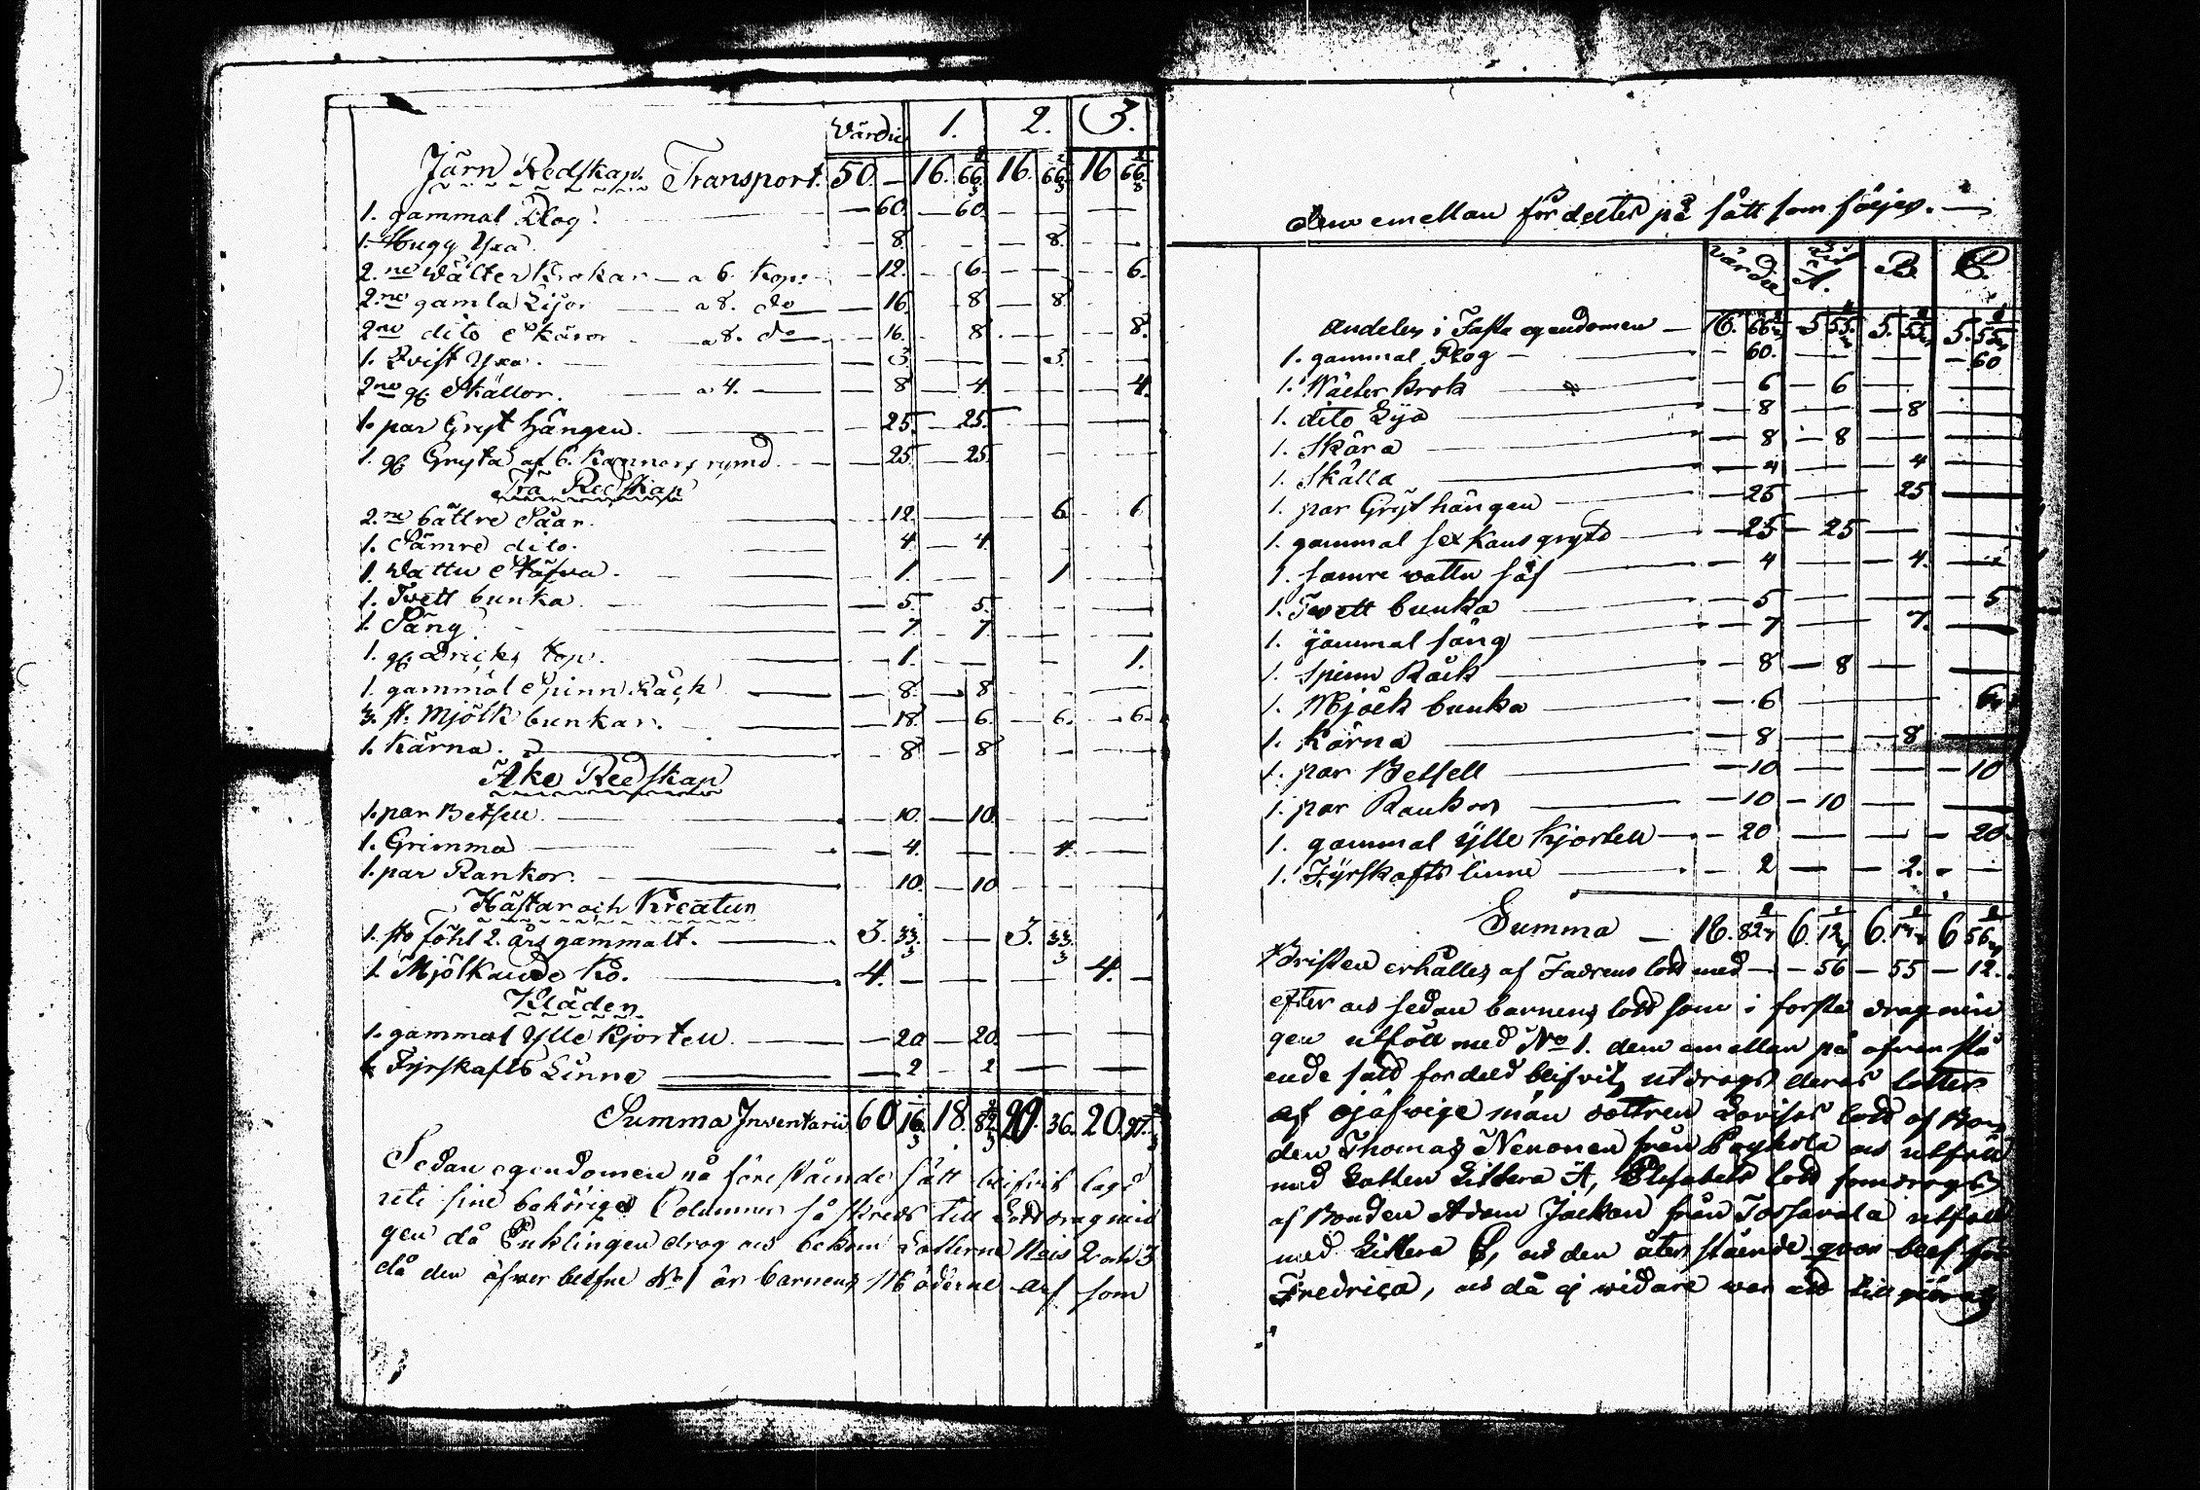 Värdie 1. 2. 3.
Järn Redskap. Transport. 50. — 16. 66 2/3 16. 66 2/3 16 66 2/3
1. gammal Plog. — 60. — 60. — — — —
1. Hugg Yxa — 8. — — — 8. — —
2.ne Wälter Krokar — a 6. Kop: — 12. — 6. — — — 6.
2.ne gamla Lijor — a 8. do — 16. — 8 — 8
2ne dito Skäror — a 8. do — 16. — 8. — — — 8.
1. Qvist Yxa. — 3. — — — 3. — —
2ne gl. Skällor. — a 4. — 8 — 4. — — — 4.
1. par Gryt hängen. — 25. — 25. — — — —
1. gl. Gryta af 6. Kannors rymd. — 25. — 25. — — — —
Trä Redskap
2.ne bättre Såar. — 12. — — — 6. — 6
1. Sämre dito. — 4. — 4. — — — —
1. Vattu Stäfva. — 1. — — — 1 — —
1. Tvett bunka. — 5. — 5. — — — —
1. Säng. — 7 — 7 — — — —
1. gl. Dricks kop. — 1. — — — — — 1.
1. gammal Spinn Råck — 8. — 8. — — — —
3. st. Mjölk bunkar. — 18. — 6. — 6. — 6.
1. Kärna. — 8 — 8 — — — —
Åke Redskap
1. par Betsell. — 10. — 10. — — — —
1. Grimma — 4. — — — 4. — —
1. par Rankor. — 10. — 10 — — — —
Hästar och Kreatur
1. sto föhl 2. års gammalt. — 3. 33 1/3 — — 3. 33 1/3
1. Mjölkande Ko. — 4. — — — — — 4. —
Kläder
1. gammal Ylle Kjortell. — 20 — 20. — — — —
1. Fyrskafts Linne — 2 — 2 — — — —
Summa Inventarii 60. 16 18. 82 20. 36. 20. 97
Sedan egendomen på föreståénde sätt blifvit lagd
uti sine behörige Columner så skreds till Lottdragnin
gen då Enklingen drog och bekom Lotterne Nris 2 och 3
då den öfver blefne No 1 är barnens Möderne arf som
dem emellan fördeltes på sätt som följer. —
värdie Lit. A. B. C.
Andelen i Fasta egendomen — 16. 66 2/3 5 55 5. 55 5. 55
1. gammal Plog — 60. — — — — — 60
1. Wälter krok — 6 — 6 — — — —
1. dito Lija — 8 — — — 8 — —
1. Skära — 8 — 8 — — — —
1. Skälla — 4 — — — 4 — —
1. par Gryt hängen — 25 — — — 25 — —
1. gammal sex kans gryta — 25 — 25 — — — —
1. samre vattu så — 4 — — — 4. — —
1. Tvett bunka — 5 — — — — — 5
1. gammal säng — 7 — — — 7. — —
1. spinn Råck — 8 — 8 — — — —
1. Mjölk bunka — 6 — — — — — 6
1. Kärna — 8 — — — 8 — —
1. par Betsell — 10 — — — — — 10
1. par Rankor — 10 — 10 — — — —
1. gammal ylle Kjortell — 20 — — — — — 20.
1. Fyrskafts linne — 2 — — — 2. — —
Summa — 18. 82 6. 12 6. 6 56
Bristen erhålles af Fadrens lott med — — 56 — 55 — 12.
efter och sedan barnens lott som i forsta dragnin
gen utföll med No 1. dem emellan på ofvanstå
ende satt fordeld blifvit, utdrogs deras lotter
af ojäfvige män dottren Lovisas lott af Bon
den Thomas Nenonen från och utföll
med Lotten Littera A, Elisabets lott som drogs
af Bonden Adam från utföll
med Littera och den åter stående blef för
Fredrica, och då ej widare war att till göras